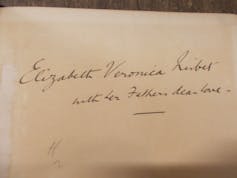 Elizabeth Veronica Nisbet
with her Fathers dear love -